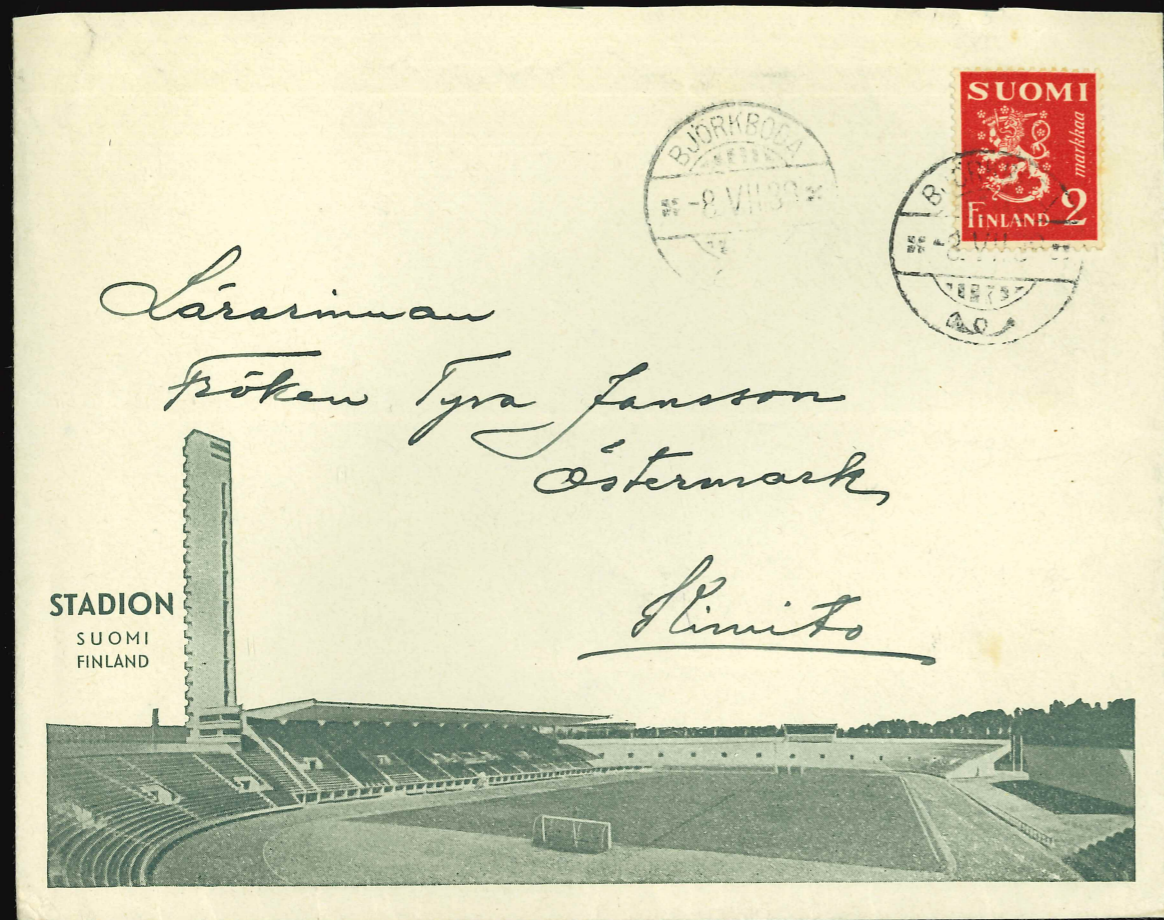 SUOMI
markkaa
FINLAND 2
BJÖRKBODA
-8.VII.39
Lärarinnan
Fröken Tyra Jansson
Östermark
Kimito
STADION
SUOMI
FINLAND